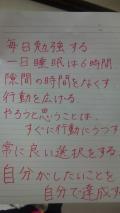 毎日勉強する
一日睡眠は6時間
隙間の時間をなくす
行動を広げる
やろうと思うことは、
すぐに行動にうつす
常に良い選択をする
自分がしたいことを
自分で達成す